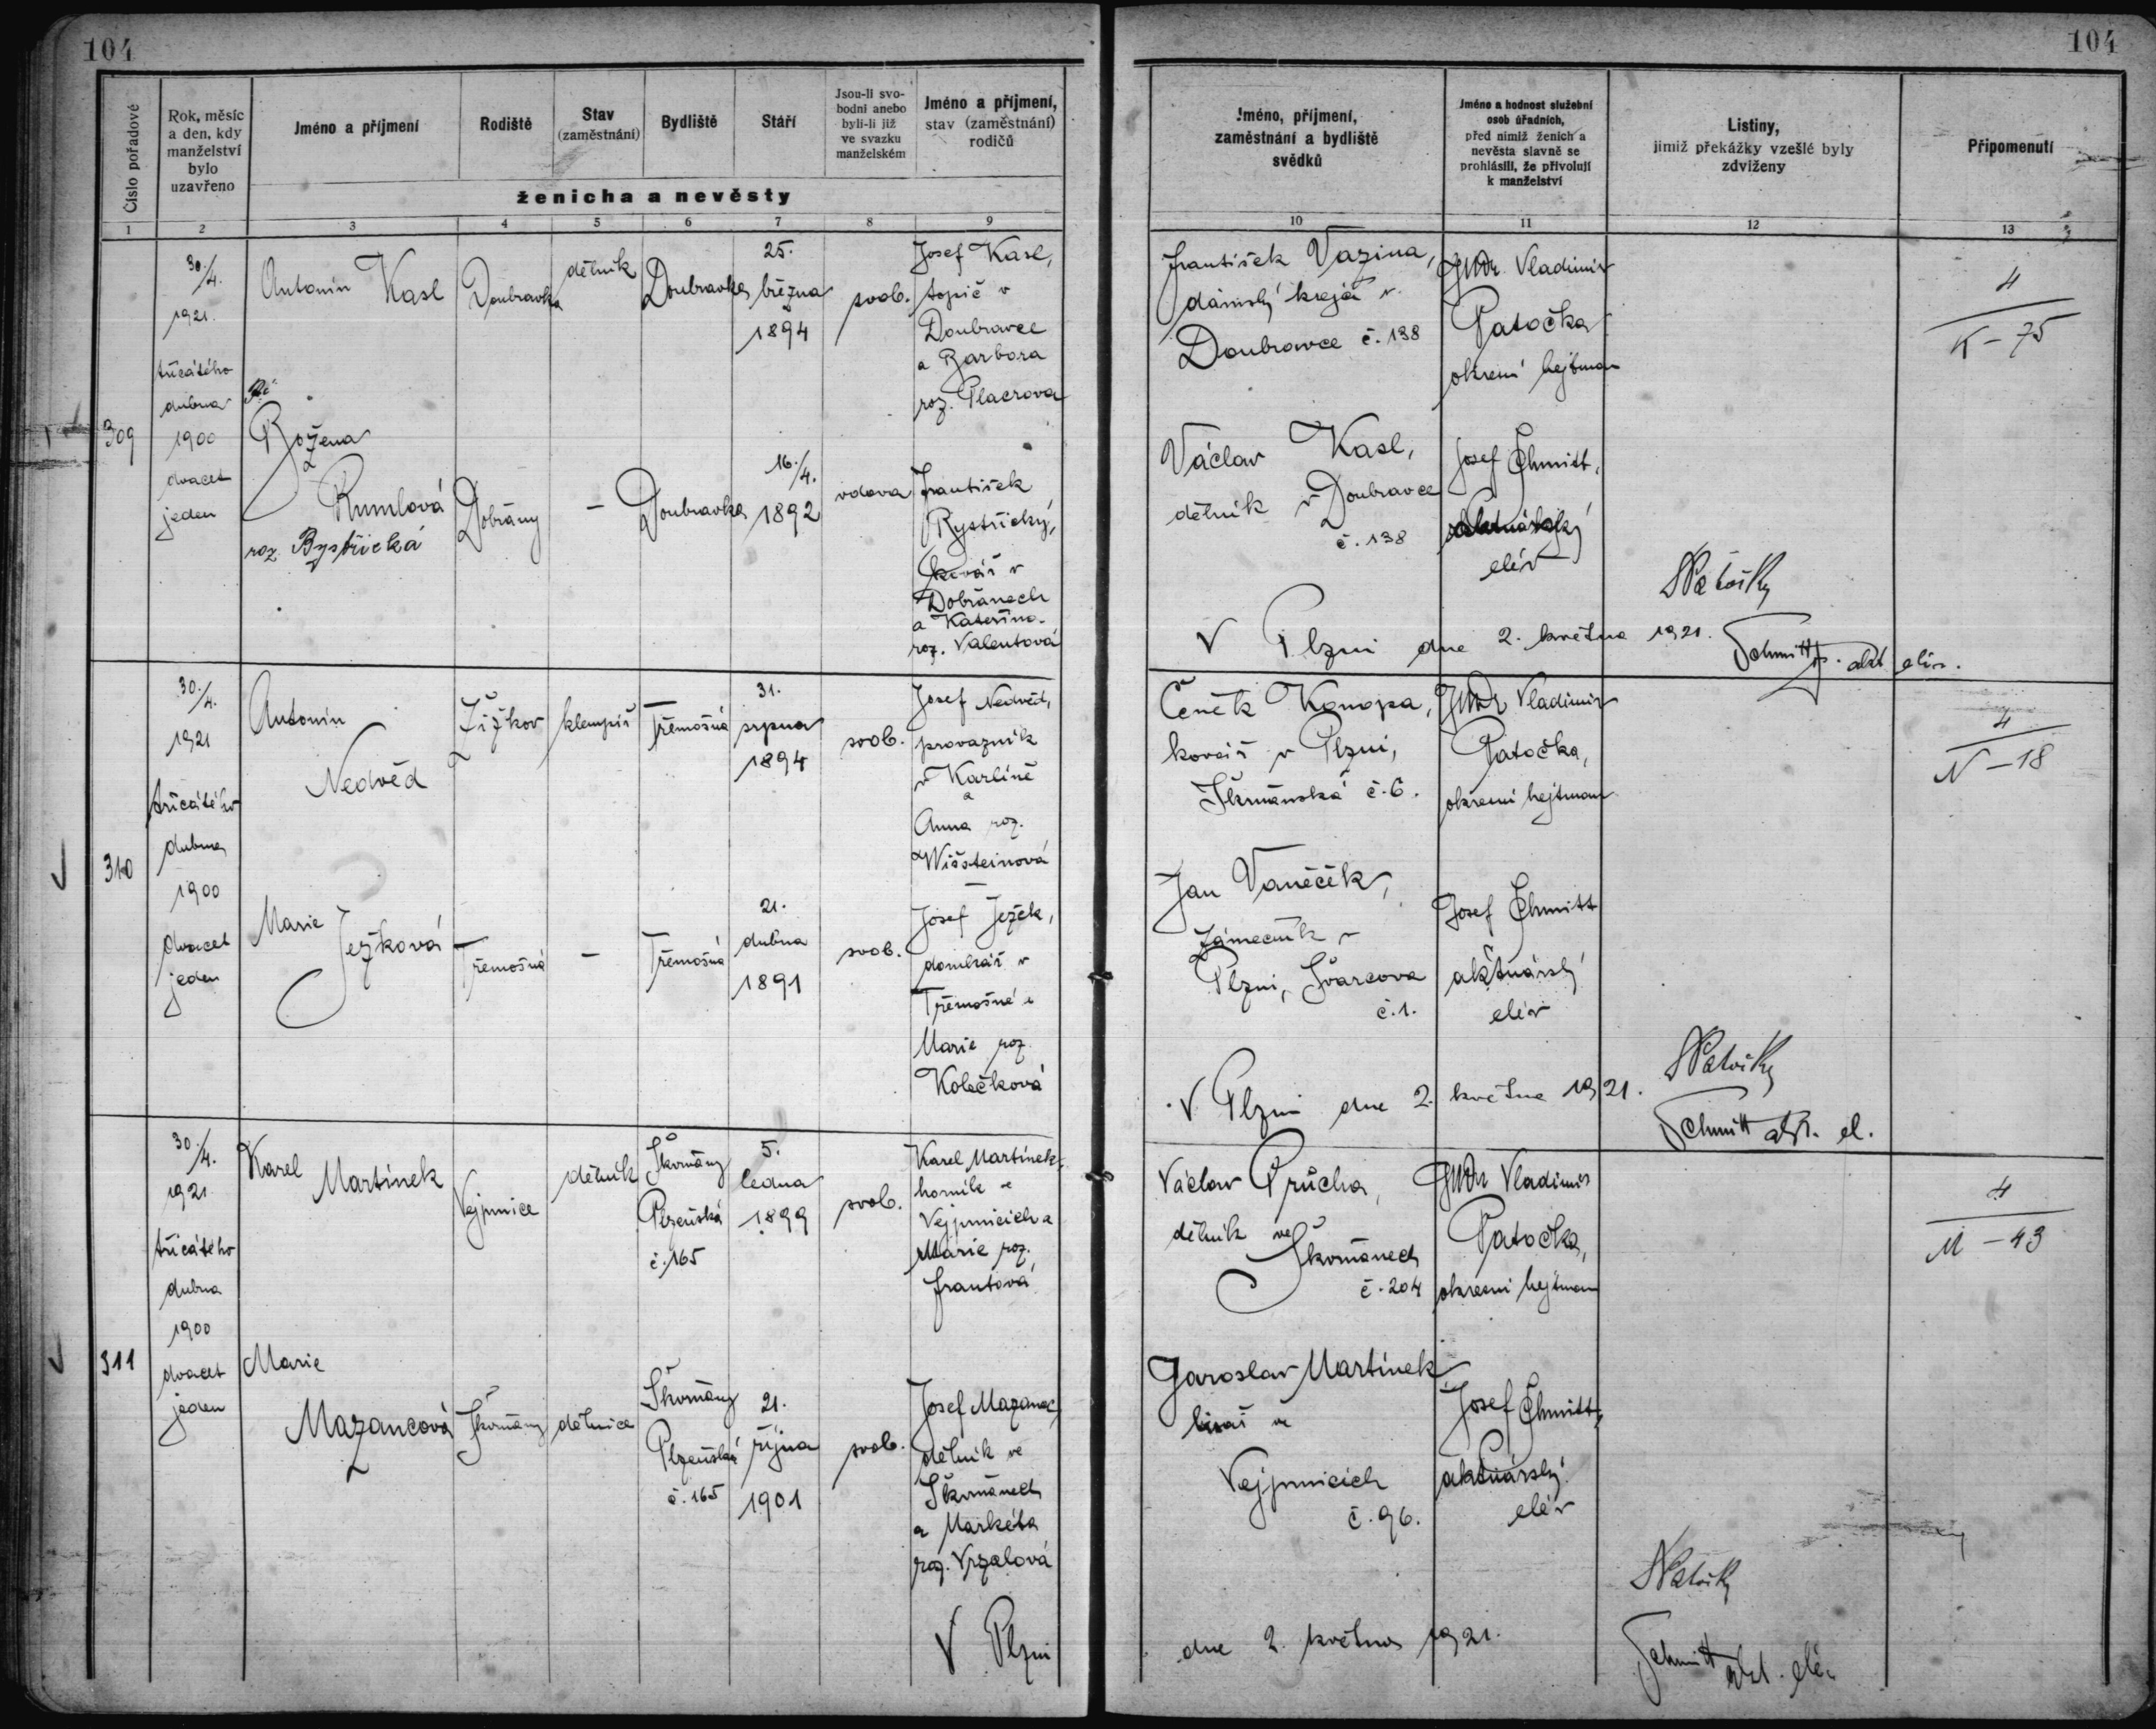 104
Číslo pořadové
Rok, měsíc
a den, kdy
manželství
bylo
uzavřeno
Jméno a příjmení
Rodiště
Stav
(zaměstnání)
Bydliště
Stáří
Jsou-li svo-
bodni anebo
byli-li již
ve svazku
manželském
Jméno a příjmení,
stav (zaměstnání)
rodičů
ženicha a nevěsty
1 2 3 4 5 6 7 8 9
309
30./4.
1921.
třicátého
dubna
1900
dvacet
jeden
Antonín Kasl
Doubravka
dělník
Doubravka
25.
března
1894
svob.
Josef Kasl,
topič v
Doubravce
a Barbora
roz. Placrova
Božena
Rumlová
roz. Bystřická
Dobřany
–
Doubravka
16./4.
1892
vdova
František
Bystřický,
kovář v
Dobřanech
a Kateřina
roz. Valentová
310
30./4.
1921
třicátého
dubna
1900
dvacet
jeden
Antonín
Nedvěd
Žižkov
klempíř
Třemošná
31.
srpna
1894
svob.
Josef Nedvěd,
provazník
v Karlíně
a
Anna roz.
Wišsteinová
Marie
Ježková
Třemošná
–
Třemošná
21.
dubna
1891
svob.
Josef Ježek,
domkář v
Třemošné a
Marie roz.
Kolečková
311
30./4.
1921
třicátého
dubna
1900
dvacet
jeden
Karel
Martínek
Vejprnice
dělník
Škvrňany
Plzeňská
č. 165
5.
ledna
1899
svob.
Karel Martínek,
horník ve
Vejprnicích a
Marie roz.
Frantová
Marie
Mazancová
Škvrňany
dělnice
Škvrňany
Plzeňská
č. 165
21.
října
1901
svob.
Josef Mazanec,
dělník ve
Škvrňanech
a Markéta
roz. Vrzalová
V Plzni
104
Jméno, příjmení,
zaměstnání a bydliště
svědků
Jméno a hodnost služební
osob úřadních,
před nimiž ženich a
nevěsta slavně se
prohlásili, že přivolují
k manželství
Listiny,
jimiž překážky vzešlé byly
zdviženy
Připomenutí
10 11 12 13
František Vazina,
dámský krejčí v
Doubravce č. 138
JUDr. Vladimír
Patočka
okresní hejtman
4
K – 75
Václav Kasl,
dělník v Doubravce
č. 138
Josef Schmitt,
aktuárský
elév
V Plzni dne 2. května 1921.
Patočka
Schmitt akt. elév.
Čeněk Konopa,
kovář v Plzni,
Škrňanská č. 6.
JUDr Vladimír
Patočka,
okresní hejtman
4
N – 18
Jan Vaněček,
zámečník v
Plzni, Švarcova
č. 1.
Josef Schmitt
aktuárský
elév
V Plzni dne 2. května 1921.
Patočka
Schmitt akt. el.
Václav Průcha,
dělník ve
Škvrňanech
č. 204
JUDr Vladimír
Patočka,
okresní hejtman
4
M – 43
Jaroslav Martínek
lisař ve
Vejprnicích
č. 96.
Josef Schmitt,
aktuárský
elév
dne 2. května 1921.
Patočka
Schmitt akt. elév